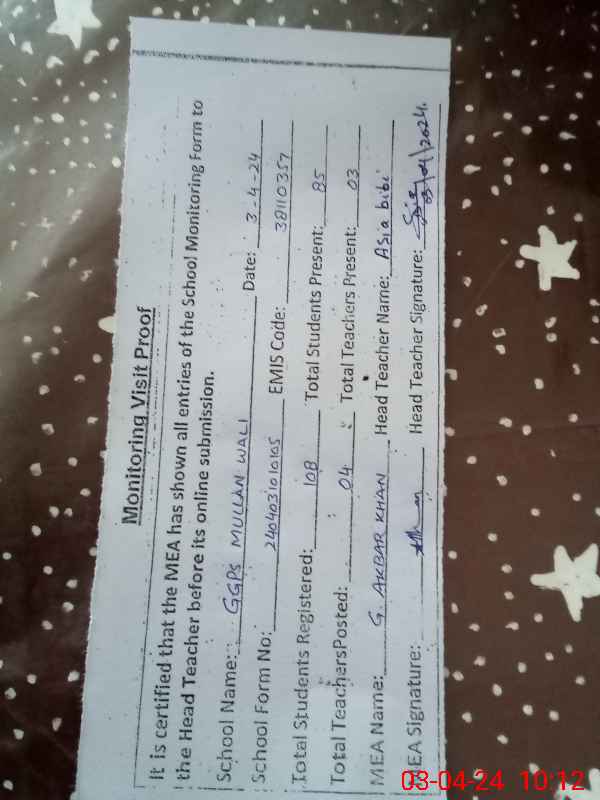 Monitoring Visit Proof
It is certified that the MEA has shown all entries of the School Monitoring Form to
the Head Teacher before its online submission.
School Name: GGPS MULLAN WALI Date: 3-4-24
School Form No: 2404031010105 EMIS Code: 38110357
Total Students Registered: 108 Total Students Present: 85
Total TeachersPosted: 04 Total Teachers Present: 03
MEA Name: G. AKBAR KHAN Head Teacher Name: Asia bibi
MEA Signature: Head Teacher Signature: 03/04/2024.
03-04-24 10:12